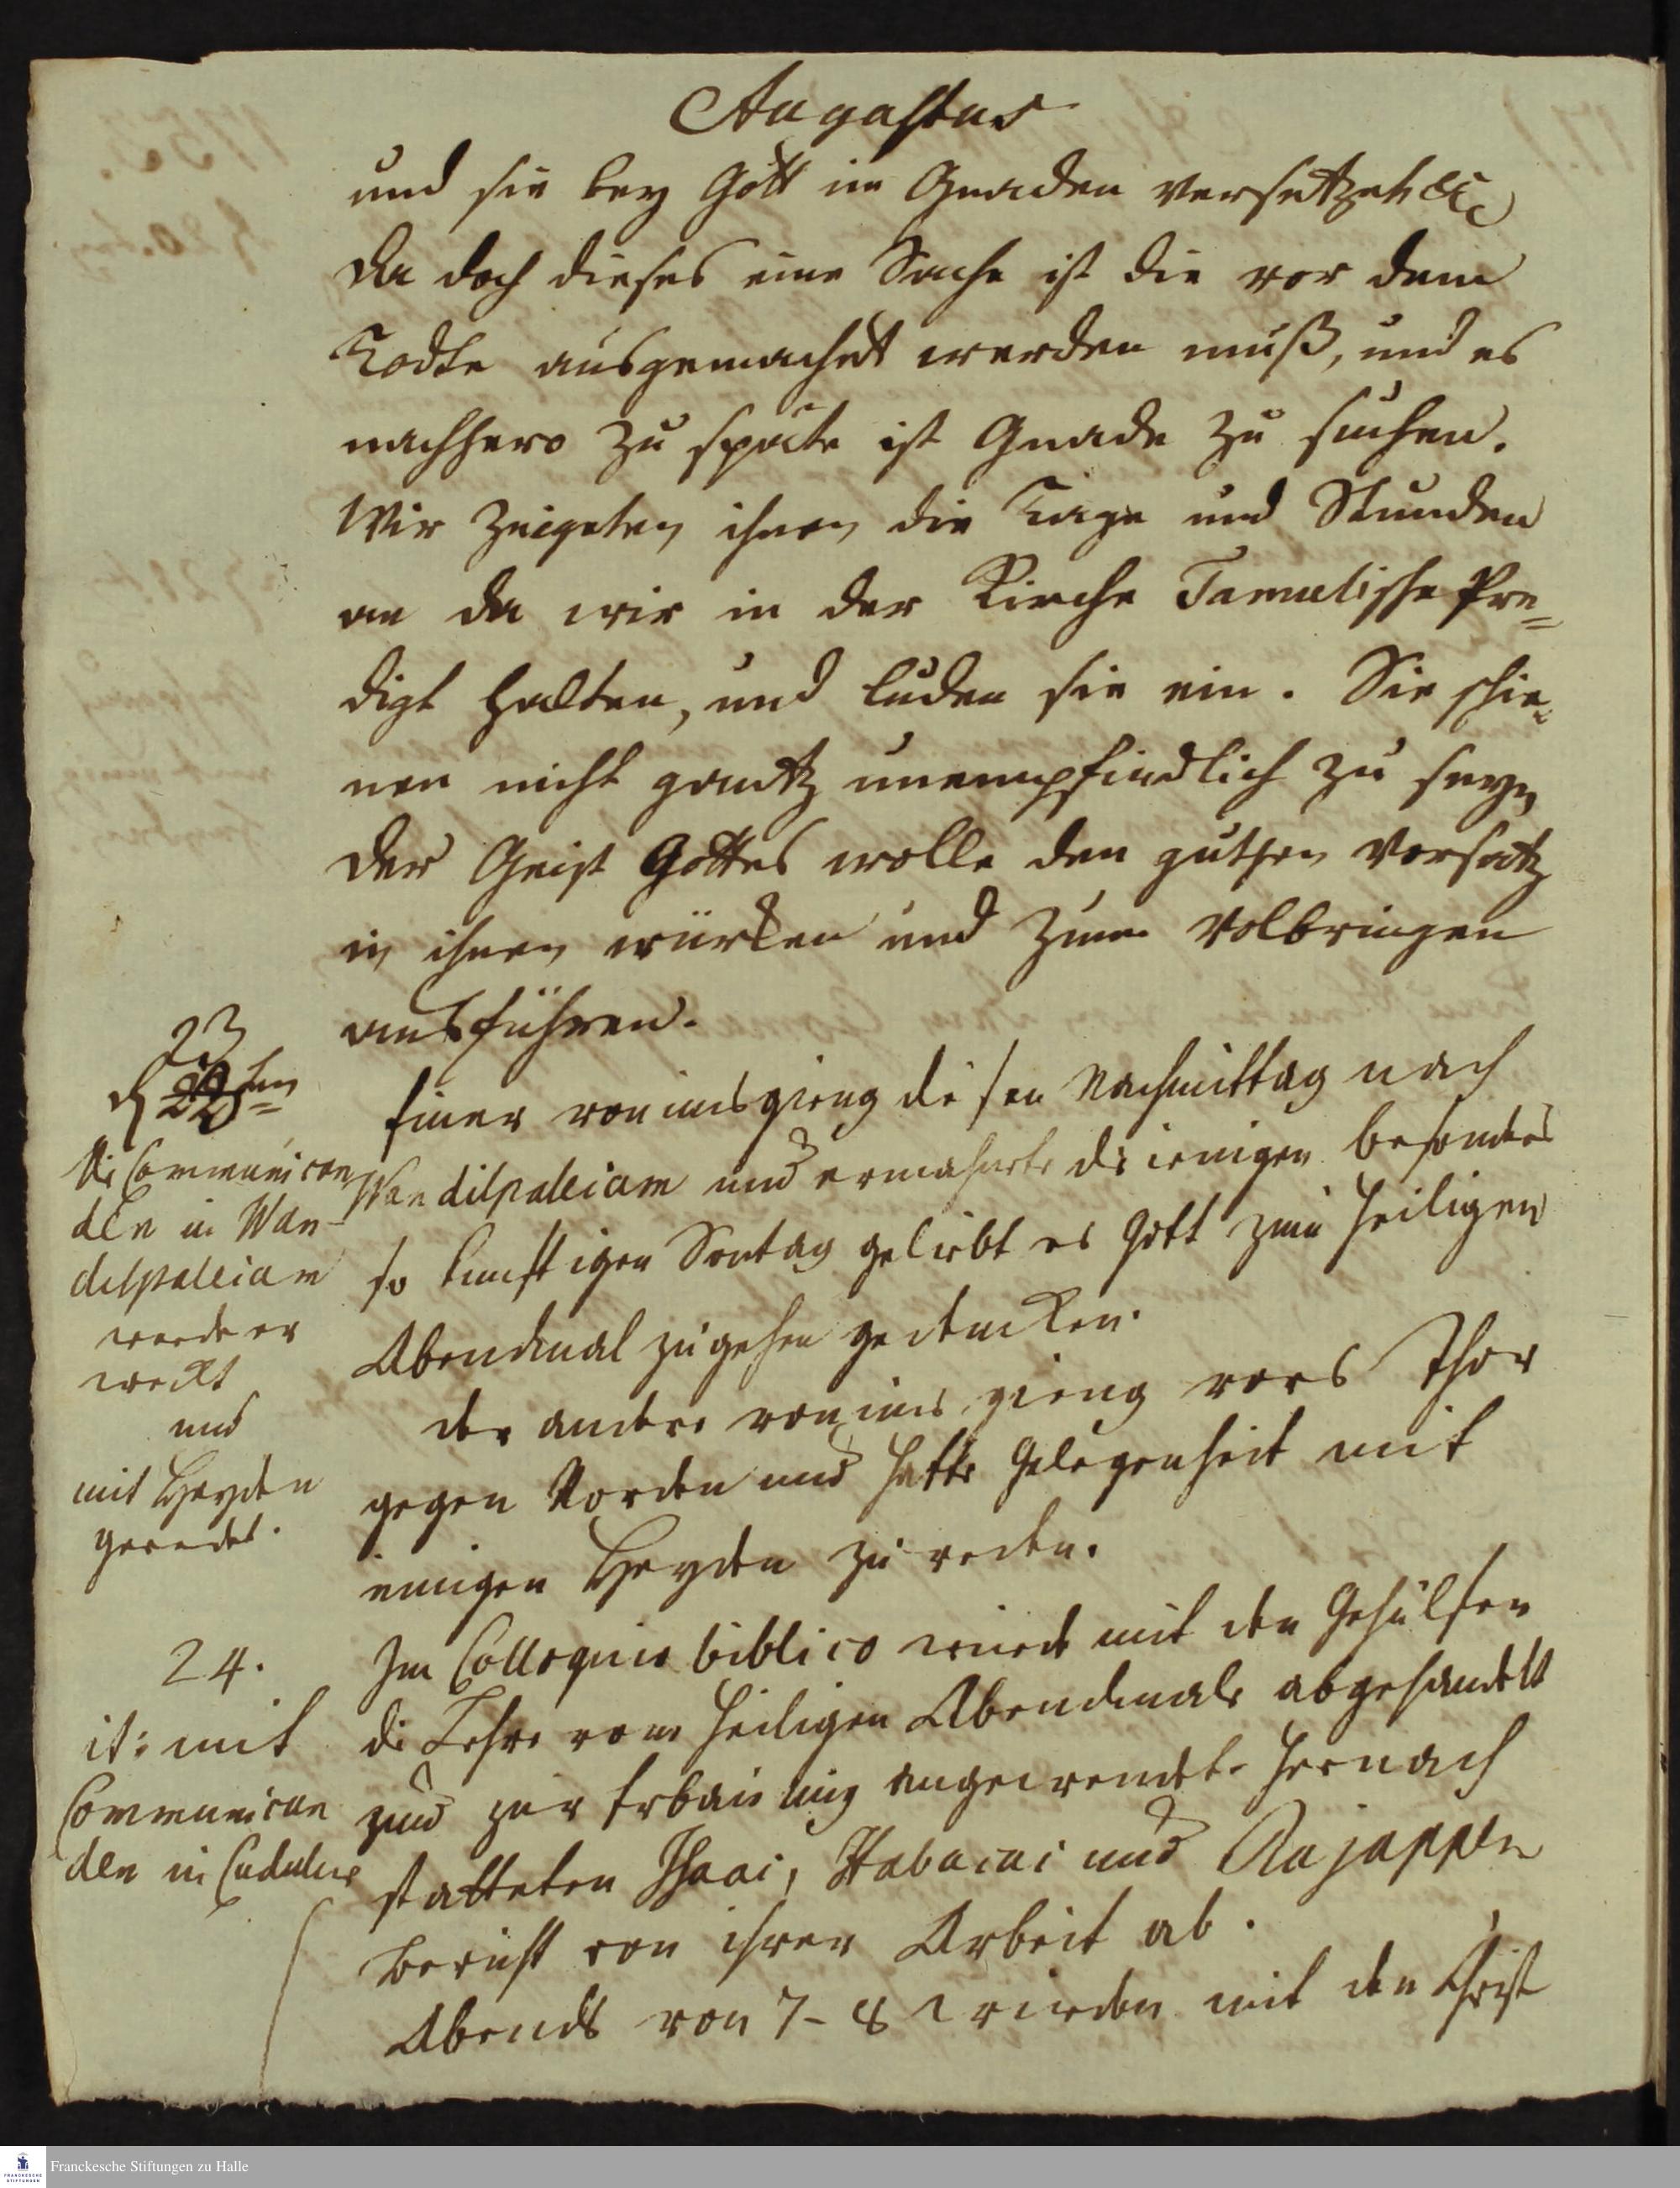 Augustus
und sie bey Gott in Gnaden versetzet &c
da doch dieses eine Sache ist die vor dem
Todte ausgemachet werden muß, und es
nachhero zu späte ist Gnade zu suchen.
Wir zeigeten ihnen die Tage und Stunden
an da wir in der Kirche Tamulische Pre=
digt halten, und luden sie ein. Sie schie=
nen nicht gantz unempfindlich zu seyn
der Geist Gottes wolle den guthen Vorsatz
in ihnen würken und zum Volbringen
ausführen.
23
d 22ten
Die Communican
den in Wan-
dilpaleiam
werde er
weckt
und
mit Heyden
geredet.
Einer von uns gieng diesen Nachmittag nach
Wandilpaleiam und ermahnete die ienigen besonders
so künftigen Sontag geliebt es Gott zum heiligen
Abendmal zu gehen gedencken.
der andere von uns gieng vors Thor
gegen Norden und hatte Gelegenheit mit
einigen Heyden zu reden.
24.
it: mit
Communican
den in Cudulur
Im Colloquio biblico wurde mit den Gehülfen
die Lehre vom heiligen Abendmale abgehandelt
und zur Erbauung angewendet. Hernach
statteten Isaac, Habacuc und Rajappen
Bericht von ihrer Arbeit ab.
Abends von 7-8 wurden mit den Christ
Franckesche Stiftungen zu Halle